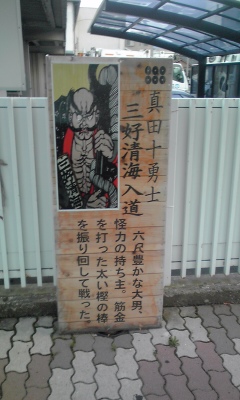 真田十勇士
三好清海入道
六尺豊かな大男、
怪力の持ち主。筋金
を打った太い樫の棒
を振り回して戦った。